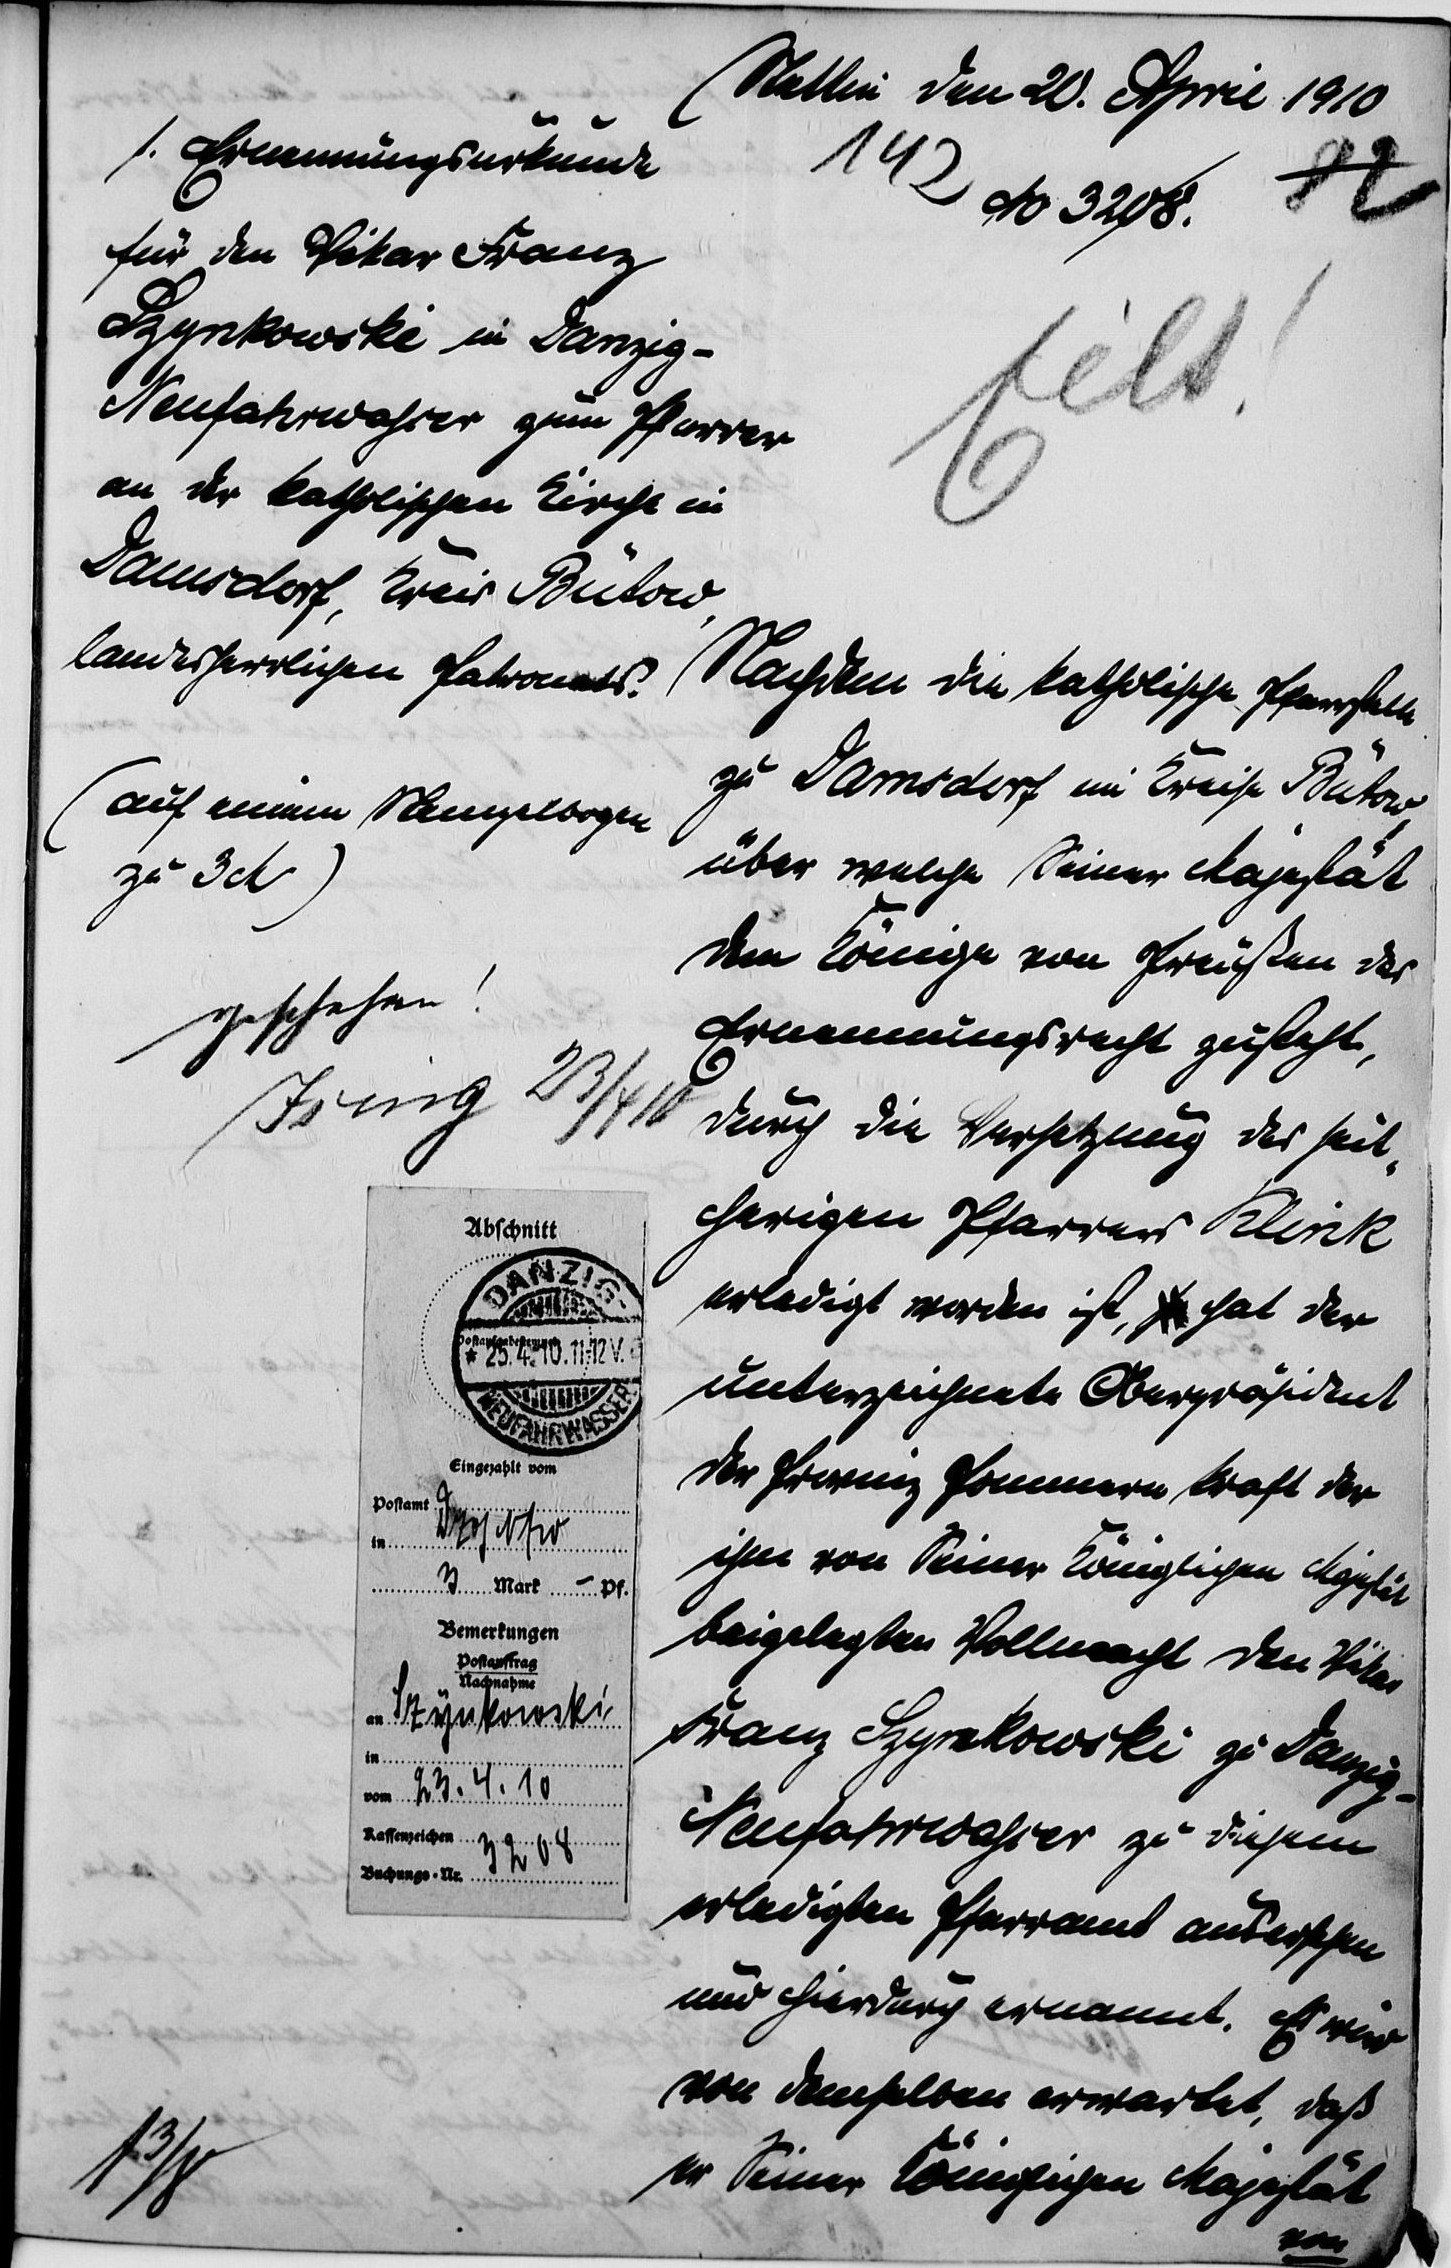 Stettin den 20. April 1910
142
No 3208.
82
Eilt!
1. Ernennungsurkunde
für den Vikar Franz
Szynkowski in Danzig-
Neufahrwasser zum Pfarrer
an der katholischen Kirche in
Damsdorf, Kreis Bütow,
landesherrlichen Patronats.
(auf einem Stempelbogen
zu 3 M)
geschehen!
23/4 10
Abschnitt
DANZIG-
* 25.4.10.11-12V.
NEUFAHRWASSER
Eingezahlt vom
Postamt
in
3 Mark – Pf.
Bemerkungen
Postauftrag
Nachnahme
an Szynkowski
in
vom 23.4.10
Kassenzeichen 3208
Buchungs-Nr.
Nachdem die katholische Pfarrstelle
zu Damsdorf im Kreise Bütow,
über welche Seiner Majestät
dem Könige von Preußen das
Ernennungsrecht zusteht,
durch die Versetzung des seit-
herigen Pfarrers Klink
erledigt worden ist, hat der
unterzeichnete Oberpräsident
der Provinz Pommern kraft der
ihm von Seiner Königlichen Majestät
beigelegten Vollmacht den Vikar
Franz Szynkowski zu Danzig-
Neufahrwasser zu diesem
erledigten Pfarramt ausersehen
und hierdurch ernannt. Es wird
von demselben erwartet, daß
er Seiner Königlichen Majestät
von